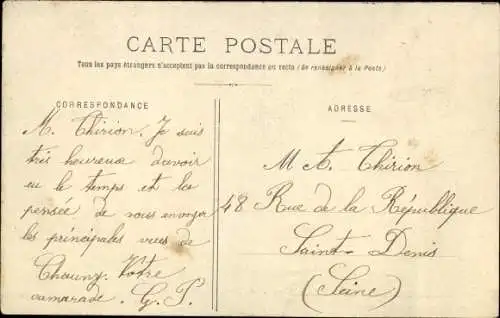 CARTE POSTALE
Tous les pays étrangers n'acceptent pas la correspondance au recto (Se renseigner à la Poste)
CORRESPONDANCE
M. Thirion. Je suis
très heureux d'avoir
eu le temps et la
pensée de vous envoyer
les principales vues de
Chauny. Votre
camarade. G. T.
ADRESSE
M A. Thirion
48 Rue de la République
Saint-Denis
(Seine)